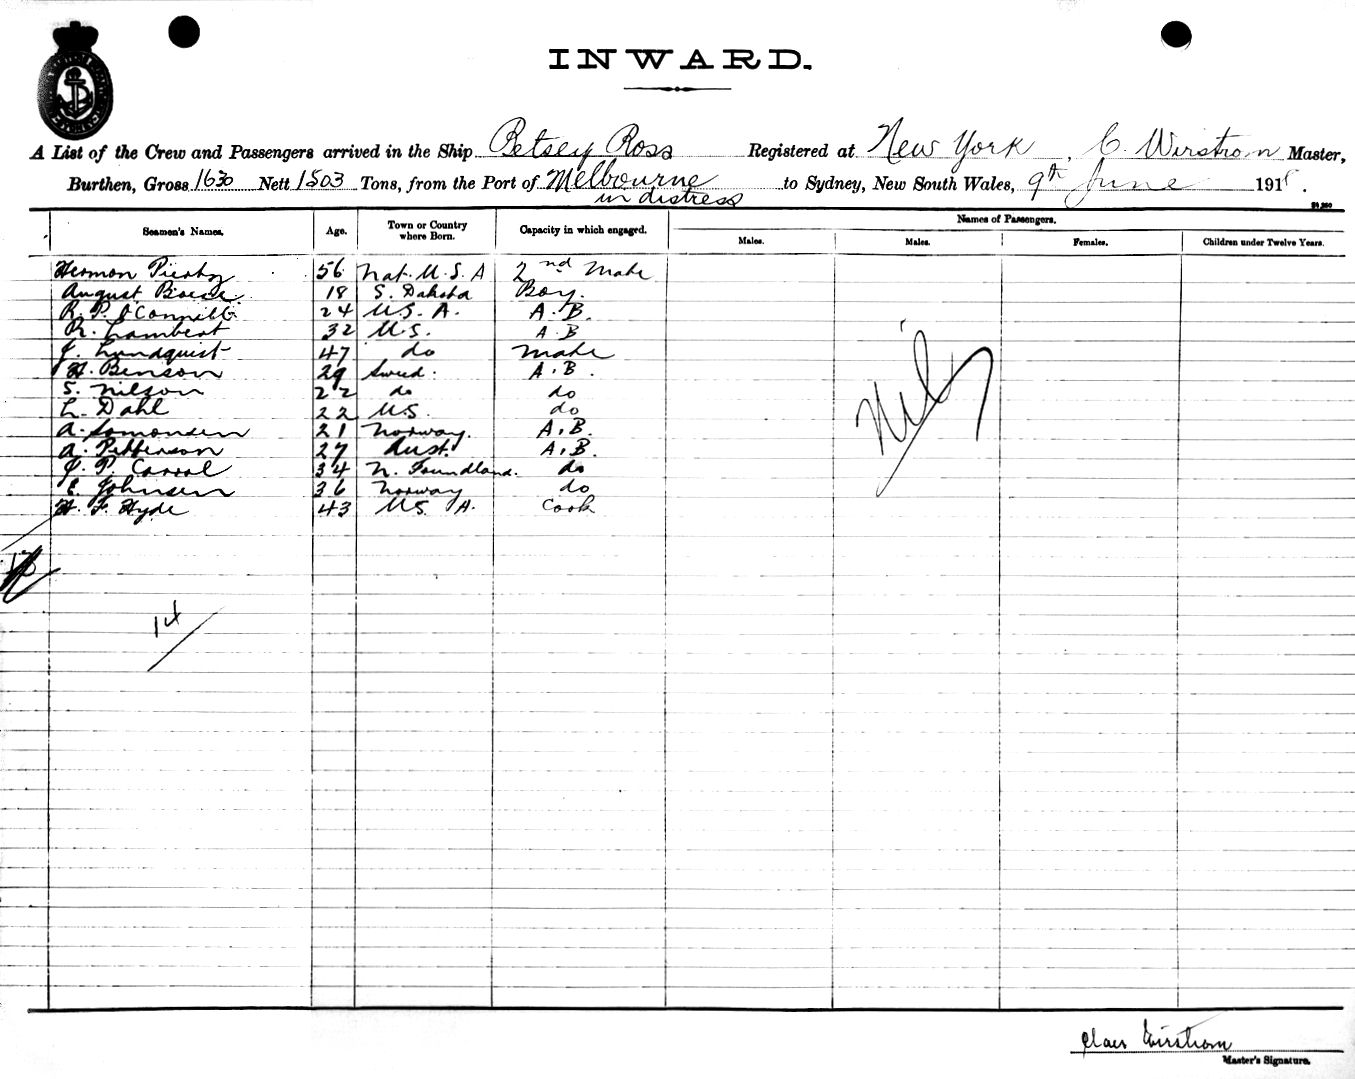 INWARD.
A List of the Crew and Passengers arrived in the Ship Betsey Ross Registered at New York, C. Wirstrom Master,
Burthen, Gross 1630 Nett 1503 Tons, from the Port of Melbourne to Sydney, New South Wales, 9th June 1918.
in distress
Seamen's Names. Age. Town or Country where Born. Capacity in which engaged. Names of Passengers.
Males. Males. Females. Children under Twelve Years.
Hermon 56 Nat. U.S.A 2nd Mate
August 18 S. Dakota Boy.
R. P. O'Connell 24 U.S.A. A.B.
R. Lambert 32 U.S. A.B
J. Lundquist 47 do Mate
H. Benson 29 Swed. A.B.
S. Nilson 22 do do
L. Dahl 22 U.S. do
A. Somonsen 21 Norway. A.B.
A. Petterson 27 Aust. A.B.
J. P. Carrol 34 N. Foundland. do
E. Johnsen 36 Norway do
H. F. Hyde 43 U.S. A. Cook
Nil
14
Claes Wirstrom
Master's Signature.